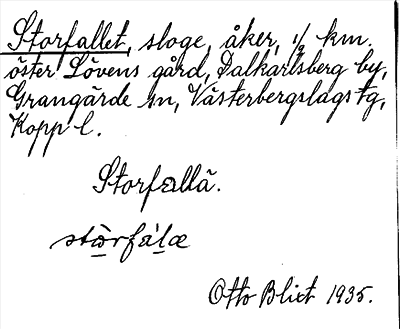 Storfallet, sloge, åker, ½ km.
öster Lövens gård, Dalkarlsberg by,
Grangärde sn, Västerbergslags tg,
Kopp l.
Storfallä.
stòrfál̠æ
Otto Blixt 1935.